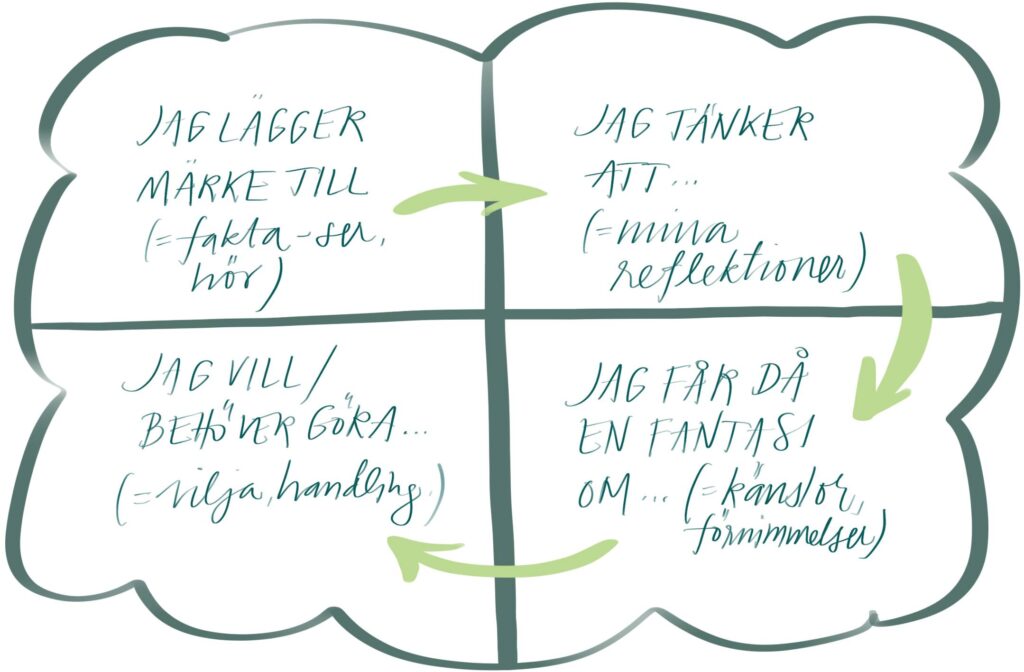 JAG LÄGGER
MÄRKE TILL
(=fakta-ser,
hör)
JAG TÄNKER
ATT...
(=mina
reflektioner)
JAG FÅR DÅ
EN FANTASI
OM... (=känslor,
förnimmelser)
JAG VILL/
BEHÖVER GÖRA...
(=vilja, handling,)